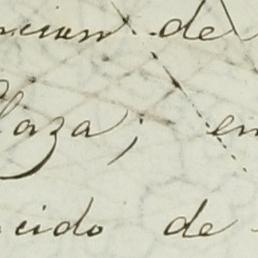 ncion de
laza; en
ncido de